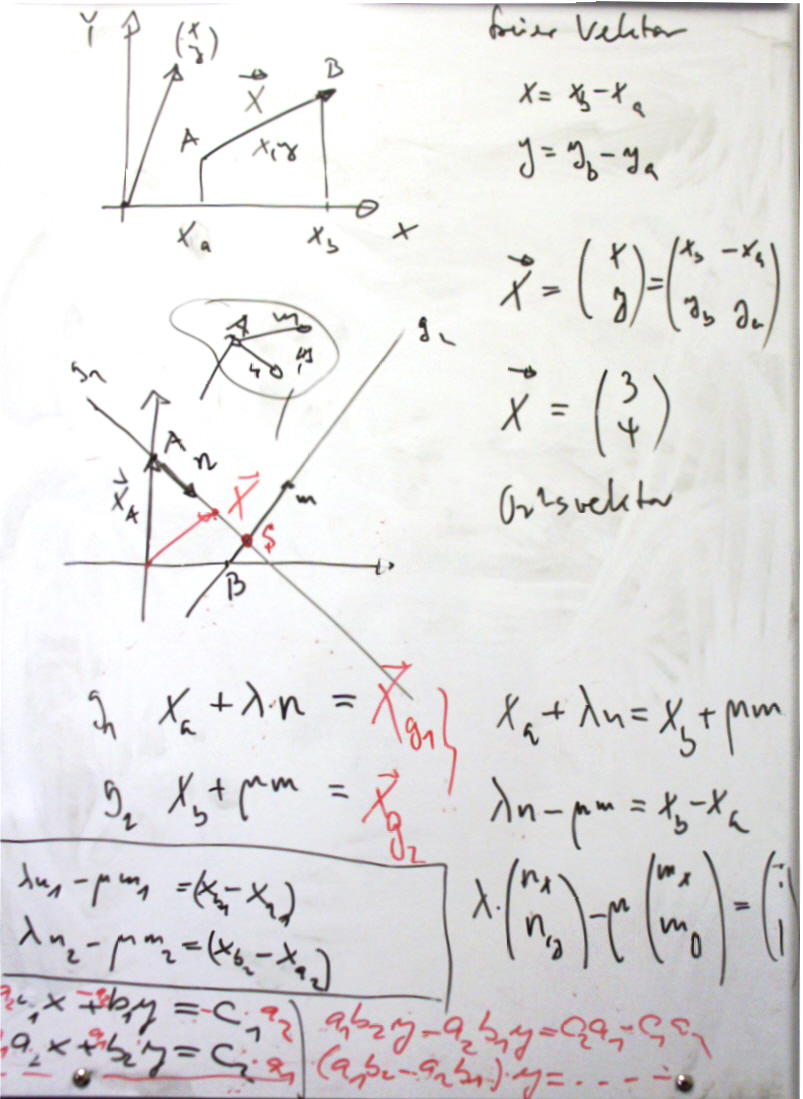 Y
(x y)
X⃗
B
A
x, y
x_a
x_b
X
freier Vektor
x = x_b - x_a
y = y_b - y_a
X⃗ = (x y) = (x_b - x_a y_b y_a)
X⃗ = (3 4)
Ortsvektor
A
m
g_1
g_2
A
n
X⃗_A
X⃗
m
S
B
g_1 x_a + λn = X⃗_g1
g_2 x_b + μm = X⃗_g2
x_a + λn = x_b + μm
λn - μm = x_b - x_a
λ·(n_x n_y) - μ(m_x m_y) = (
λn_1 - μm_1 = (x_b1 - x_a1)
λn_2 - μm_2 = (x_b2 - x_a2)
a_1x + b_1y = -c_1·a_2
a_2x + b_2y = c_2·a_1
a_1b_2y - a_2b_1y = c_2a_1 - c_1a_2
(a_1b_2 - a_2b_1)·y = ....